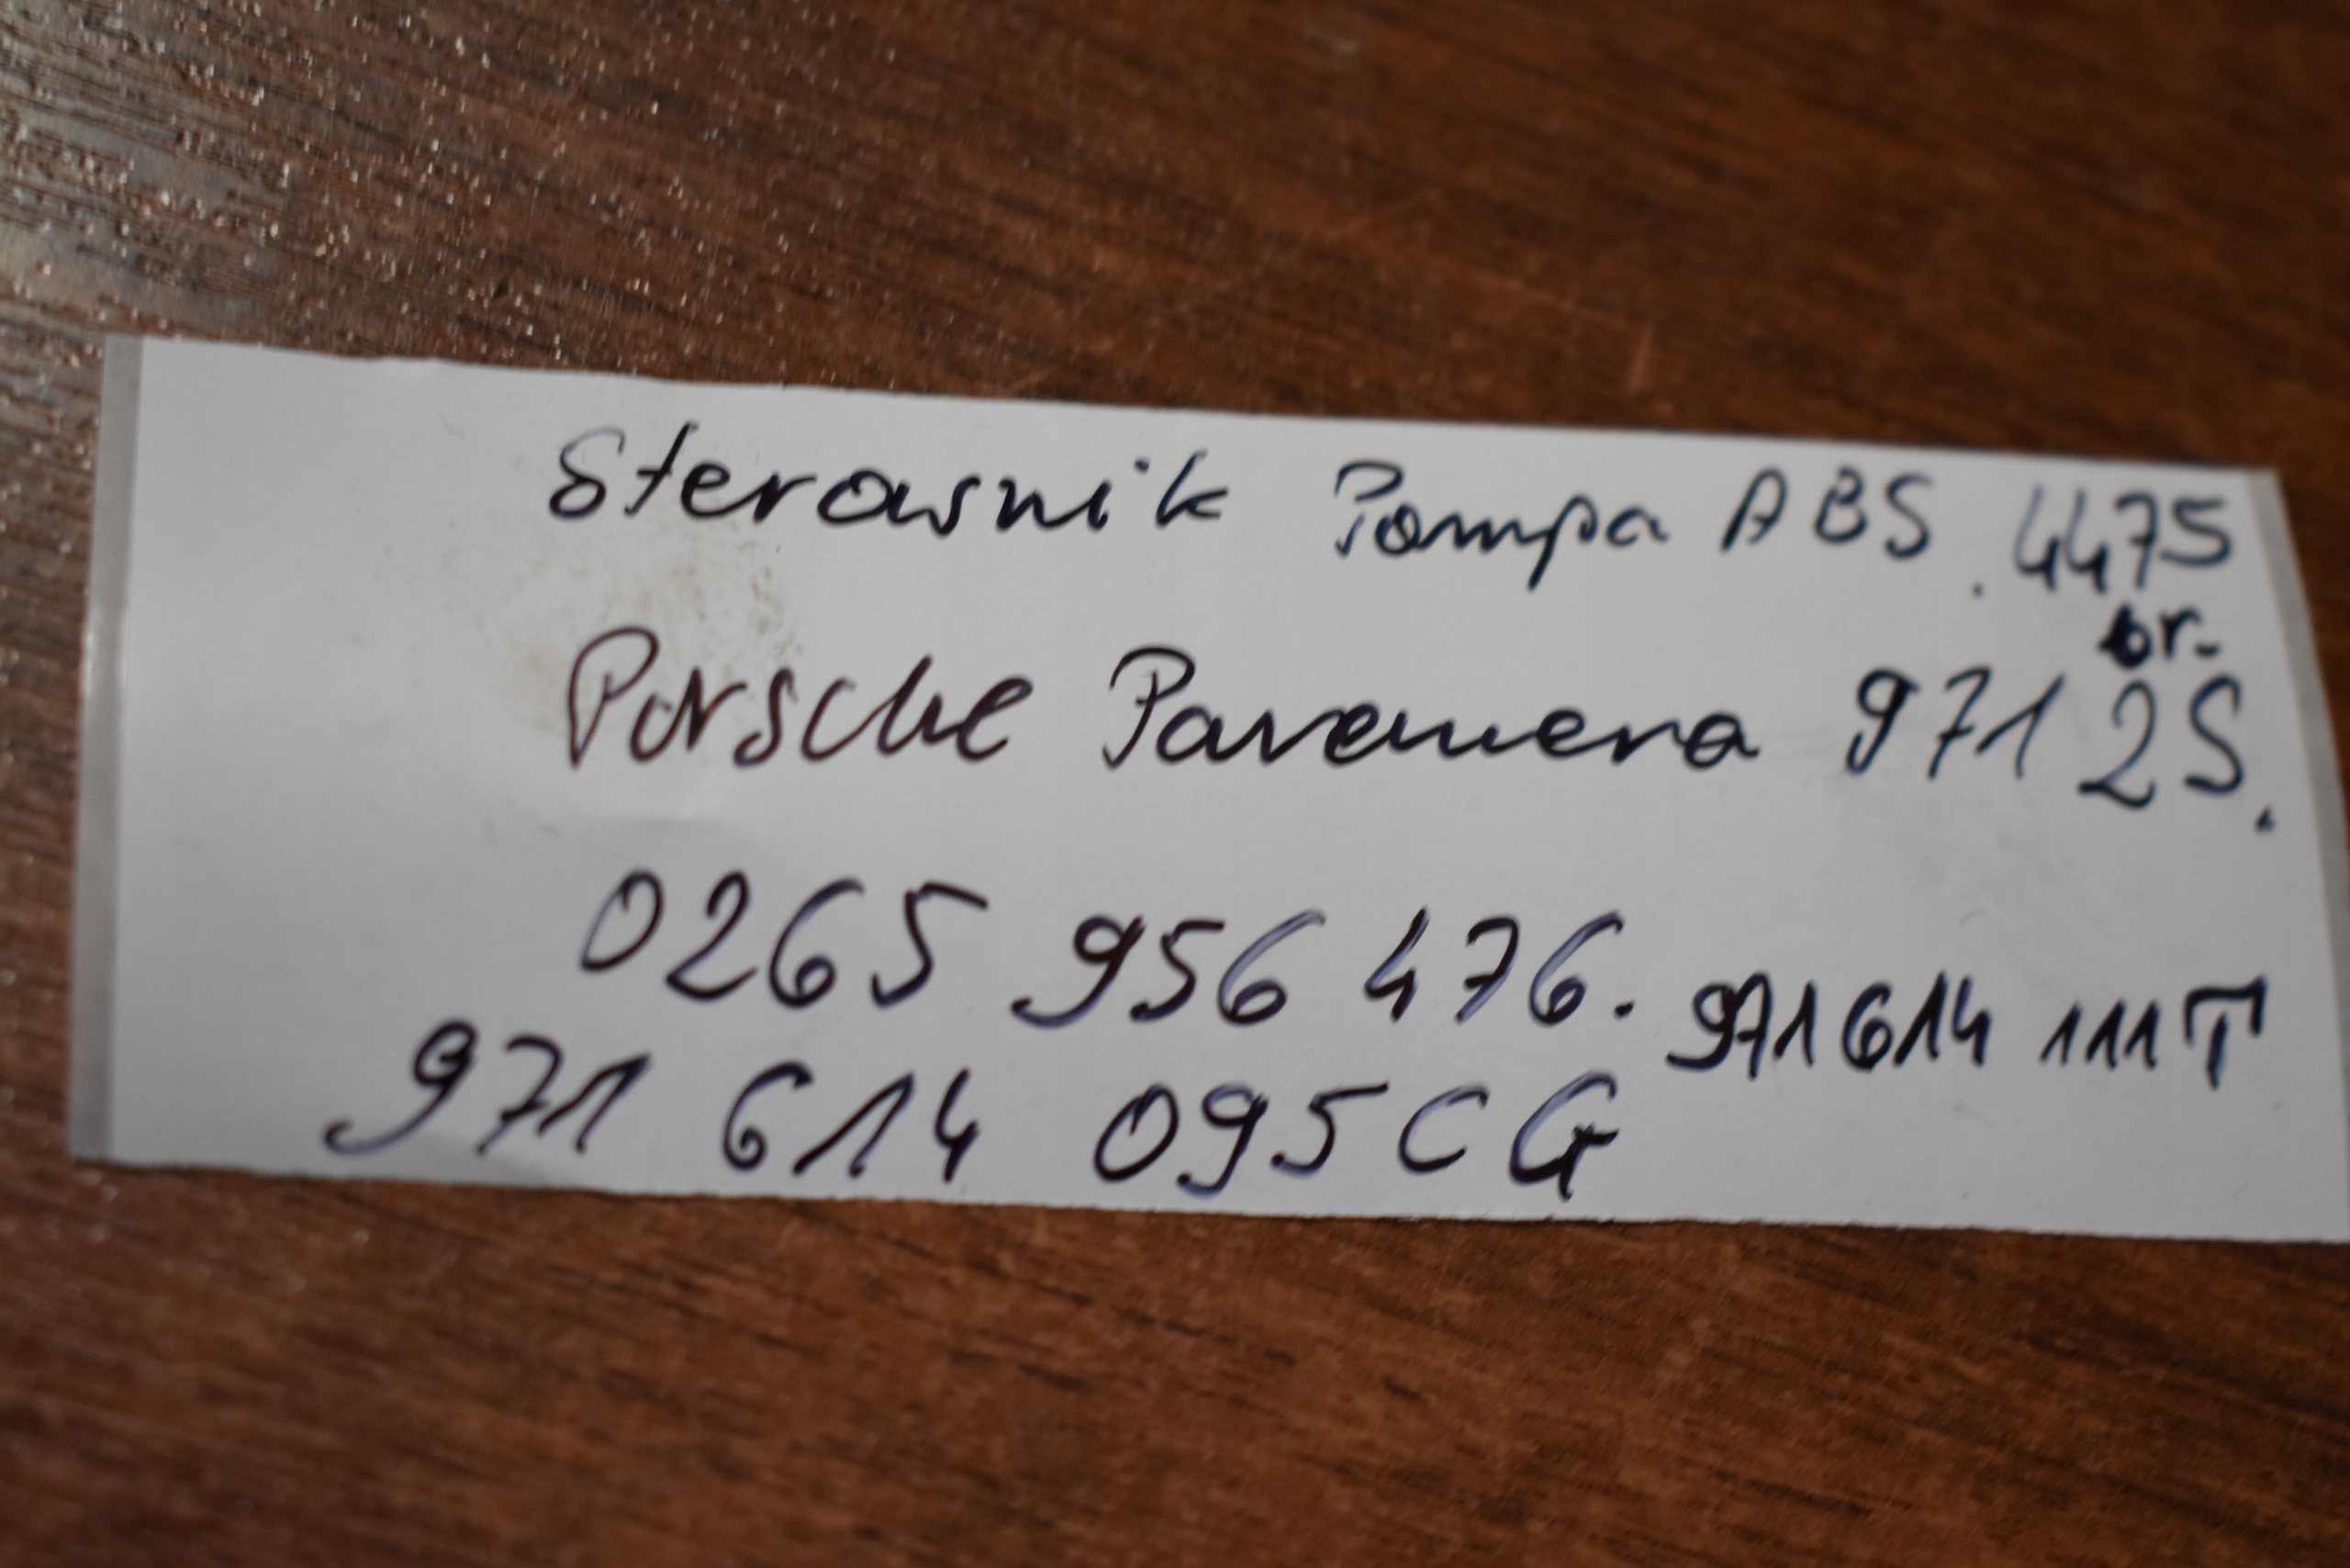 Sterownik Pompa ABS. 4475
br.
Porsche Panamera 971 2S.
0265 956 476. 971 614 111T
971 614 095CG